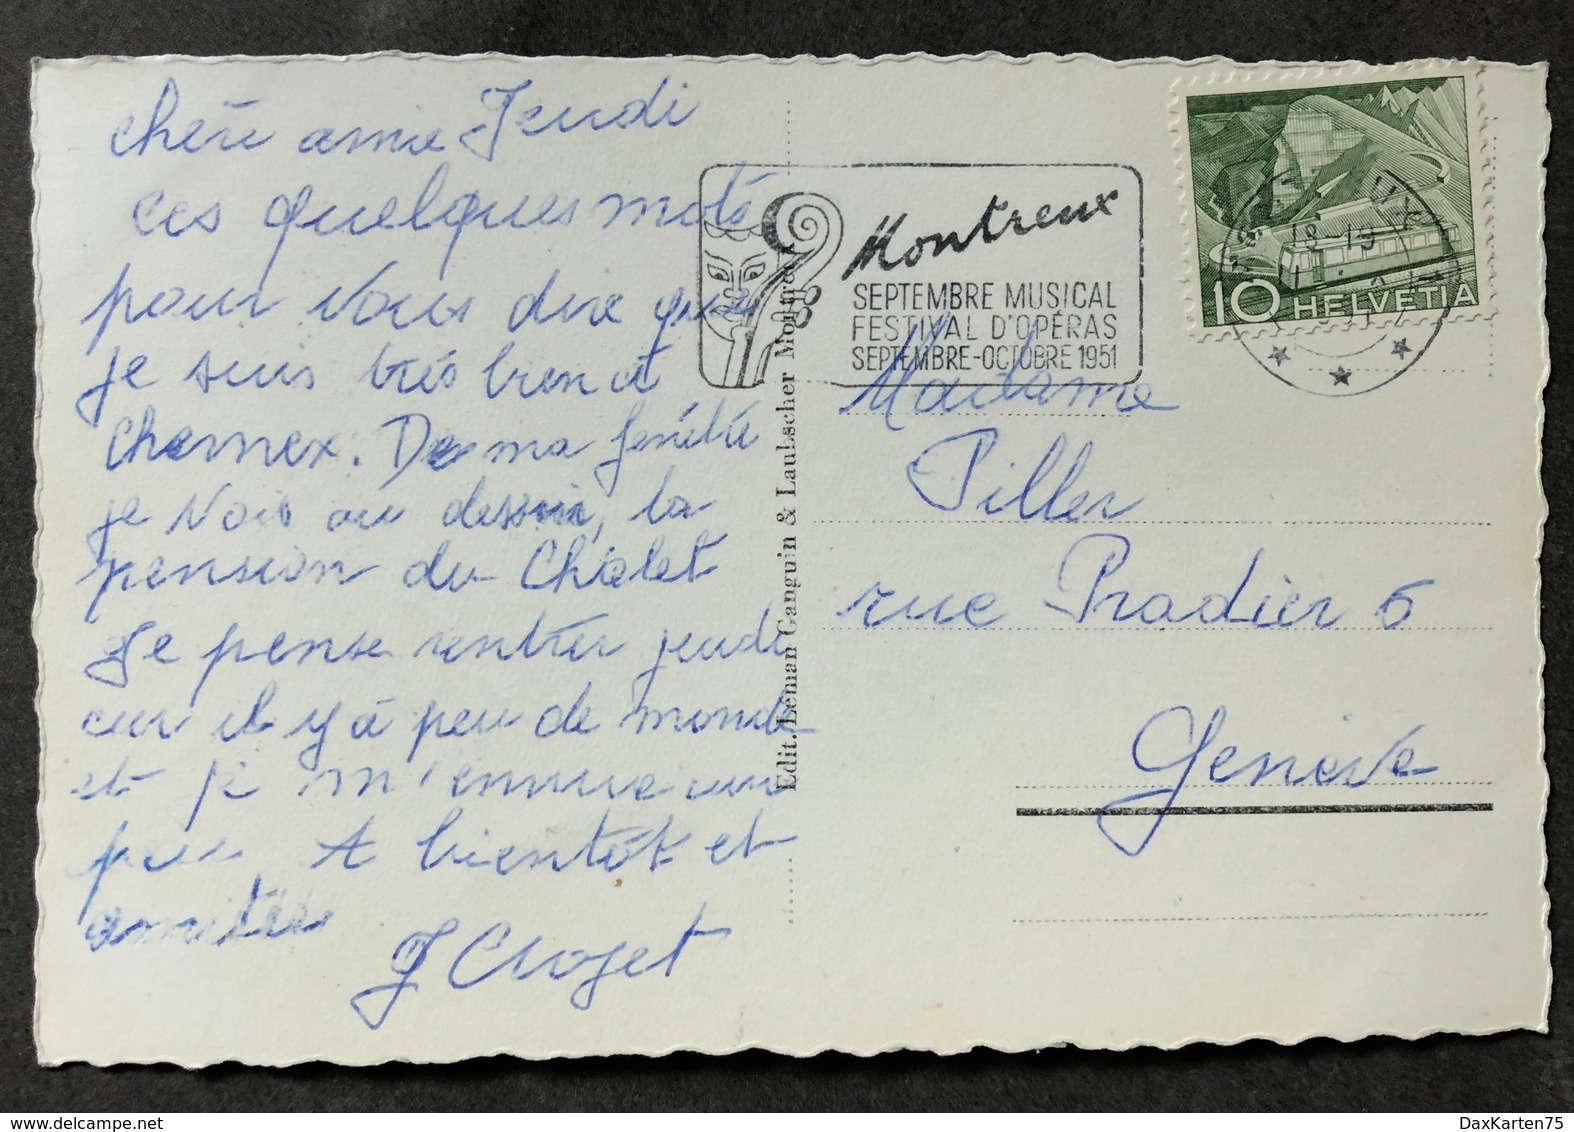 chère amie Jeudi
ces quelques mots
pour vous dire que
je suis très bien at
Chernex. De ma fenêtre
je vois au dessus, la
pension du Chalet
Je pense rentrer jeudi
car il y à peu de monde
et je m'ennuie un
peu A bientôt et
amitiés
J Crojet
Edit. Léman Ganguin & Laubscher Montreux
Montreux
SEPTEMBRE MUSICAL
FESTIVAL D'OPÉRAS
SEPTEMBRE-OCTOBRE 1951
18-19
10 HELVETIA
Madame
Piller
rue Pradier 6
Genève
DaxKarten75